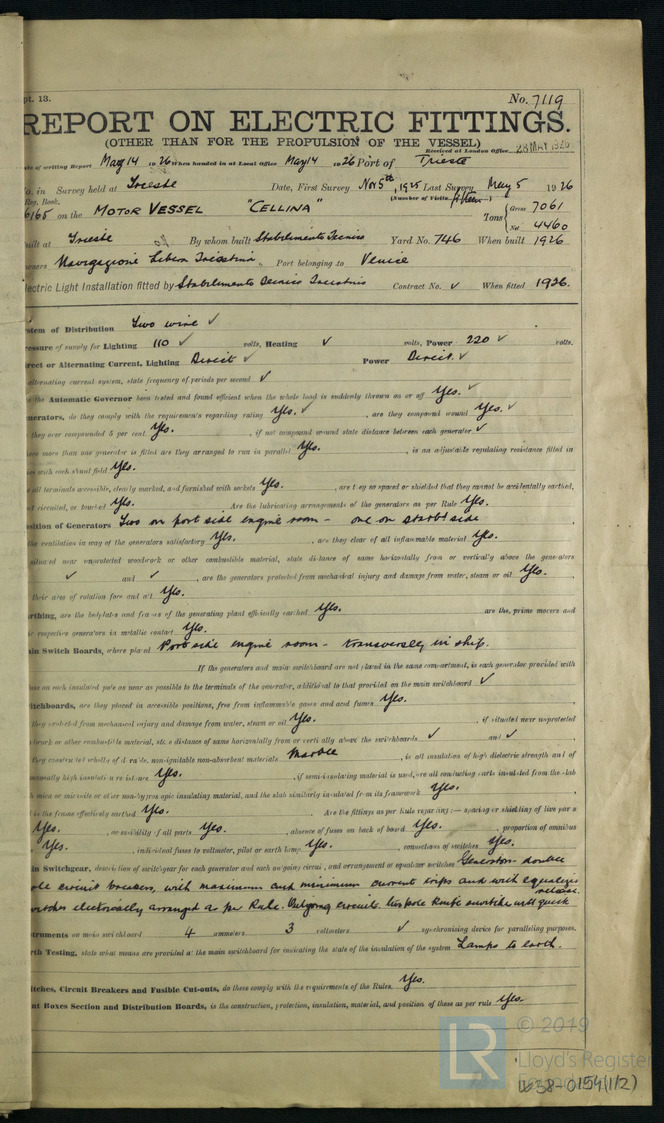 pt. 13.
No. 7119
REPORT ON ELECTRIC FITTINGS.
(OTHER THAN FOR THE PROPULSION OF THE VESSEL)
Received at London Office 28 MAY 1926
of writing Report May 14 1926 When handed in at Local Office May 14 1926 Port of Trieste
No. in Survey held at Trieste Date, First Survey Nov 5th, 1925 Last Survey May 5 1926
Reg. Book. (Number of Visits fifteen)
6165 on the MOTOR VESSEL "CELLINA" Tons { Gross 7061
Net 4460
Built at Trieste By whom built Stabilimento Tecnico Yard No. 746 When built 1926
Owners Navigazione Libera Triestina Port belonging to Venice
Electric Light Installation fitted by Stabilimento Tecnico Triestino Contract No. ✓ When fitted 1926.
System of Distribution Two wire ✓
Pressure of supply for Lighting 110 ✓ volts, Heating ✓ volts, Power 220 ✓ volts.
Direct or Alternating Current, Lighting Direct ✓ Power Direct. ✓
alternating current system, state frequency of periods per second ✓
the Automatic Governor been tested and found efficient when the whole load is suddenly thrown on or off Yes. ✓
Generators, do they comply with the requirements regarding rating Yes. ✓, are they compound wound Yes. ✓
they over compounded 5 per cent Yes., if not compound wound state distance between each generator ✓
more than one generator is fitted are they arranged to run in parallel Yes., is an adjustable regulating resistance fitted in
with each shunt field Yes.
all terminals accessible, clearly marked, and furnished with sockets Yes., are they so spaced or shielded that they cannot be accidentally earthed,
circuited, or touched Yes. Are the lubricating arrangements of the generators as per Rule Yes.
Position of Generators Two on port side engine room - one on starbd side
the ventilation in way of the generators satisfactory Yes., are they clear of all inflammable material Yes.
situated near unprotected woodwork or other combustible material, state distance of same horizontally from or vertically above the generators
✓ and ✓, are the generators protected from mechanical injury and damage from water, steam or oil Yes.
their axes of rotation fore and aft Yes.
Earthing, are the bedplates and frames of the generating plant efficiently earthed Yes. are the, prime movers and
their respective generators in metallic contact Yes.
Main Switch Boards, where placed Port side engine room - transversely in ship.
If the generators and main switchboard are not placed in the same compartment, is each generator provided with
fuse on each insulated pole as near as possible to the terminals of the generator, additional to that provided on the main switchboard ✓
Switchboards, are they placed in accessible positions, free from inflammable gases and acid fumes Yes.
they protected from mechanical injury and damage from water, steam or oil Yes., if situated near unprotected
woodwork or other combustible material, state distance of same horizontally from or vertically above the switchboards ✓ and ✓
they constructed wholly of durable, non-ignitable non-absorbent materials Marble, is all insulation of high dielectric strength and of
permanently high insulation resistance Yes., if semi-insulating material is used, are all conducting parts insulated from the slab
mica or micanite or other non-hygroscopic insulating material, and the slab similarly insulated from its framework Yes.
is the frame effectively earthed Yes. Are the fittings as per Rule regarding :— spacing or shielding of live parts
Yes., accessibility of all parts Yes., absence of fuses on back of board Yes., proportion of omnibus
Yes., individual fuses to voltmeter, pilot or earth lamp Yes., connections of switches Yes.
Main Switchgear, description of switchgear for each generator and each outgoing circuit, and arrangement of equalizer switches Generators double
pole circuit breakers, with maximum and minimum current trips and with equalizer
switches electrically arranged as per Rule. Outgoing circuits two pole knife switches with quick release.
Instruments on main switchboard 4 ammeters 3 voltmeters ✓ synchronising device for paralleling purposes.
Earth Testing, state what means are provided at the main switchboard for indicating the state of the insulation of the system Lamps to earth.
Switches, Circuit Breakers and Fusible Cut-outs, do these comply with the requirements of the Rules. Yes.
Joint Boxes Section and Distribution Boards, is the construction, protection, insulation, material, and position of these as per rule Yes.
© 2019
LR Lloyd's Register
Foundation
W38-0154(1/2)